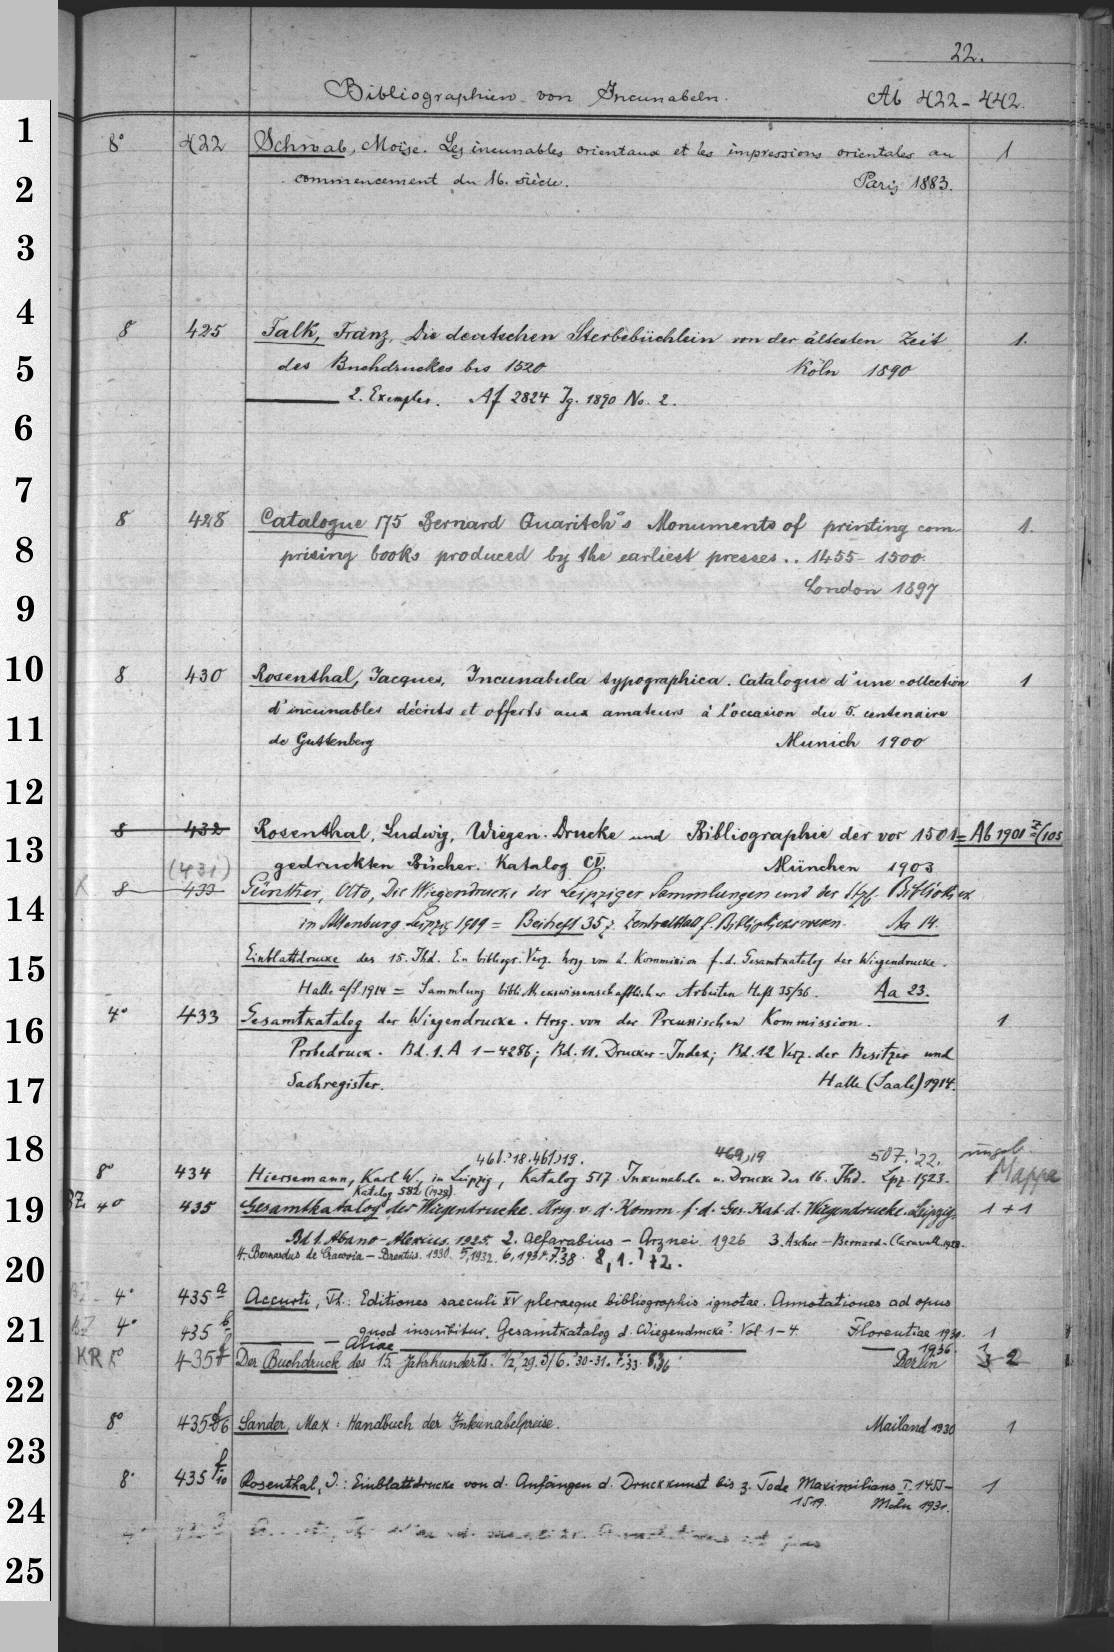 22.
Bibliographien von Incunabeln. Ab 422-442.
1
8° 422 Schwab, Moïse. Les incunables orientaux et les impressions orientales au 1
2
commencement du 16. siècle. Paris 1883.
3
4
8 425 Falk, Franz, Die deutschen Sterbebüchlein von der ältesten Zeit 1.
5
des Buchdruckes bis 1520 Köln 1890
2. Exemplar. Af 2824 Jg. 1890 No. 2.
6
7
8 428 Catalogue 175 Bernard Quaritch's Monuments of printing com- 1.
8
prising books produced by the earliest presses .. 1455-1500.
London 1897
9
10
8 430 Rosenthal, Jacques, Incunabula typographica. Catalogue d'une collection 1
d'incunables décrits et offerts aux amateurs à l'occasion du 5. centenaire
11
de Guttenberg Munich 1900
12
8 432 Rosenthal, Ludwig, Wiegen-Drucke und Bibliographie der vor 1501 = Ab 1901 (105
13
(431) gedruckten Bücher. Katalog CV. München 1903
8 433 Günther, Otto, Die Wiegendrucke der Leipziger Sammlungen und der Bibliothek
14
in Altenburg. Leipzig 1909 = Beiheft 35 z. Zentralblatt f. Bibliothekswesen. Aa 14.
15
Einblattdrucke des 15. Jhd. Ein bibliogr. Verz. hrsg. von d. Kommission f. d. Gesamtkatalog der Wiegendrucke.
Halle a/S. 1914 = Sammlung bibliothekswissenschaftlicher Arbeiten Heft 35/36. Aa 23.
16
4° 433 Gesamtkatalog der Wiegendrucke. Hrsg. von der Preussischen Kommission. 1
Probedruck. Bd. 1. A 1-4286; Bd. 11. Drucker-Index; Bd. 12 Verz. der Besitzer und
17
Sachregister. Halle (Saale) 1914.
18
461.'18. 461,19. 469,19 507.'22. ungeb.
8° 434 Hiersemann, Karl W., in Leipzig, Katalog 517. Inkunabeln u. Drucke des 16. Jhd. Lpz. 1923. Mappe
Katalog 582 (1928)
19
4° 435 Gesamtkatalog der Wiegendrucke. Hrsg. v. d. Komm. f. d. Ges. Kat. d. Wiegendrucke. Leipzig. 1+1
Bd 1. Abano-Alexius. 1925. 2. Alfarabius - Arznei 1926 3. Ascher - Bernard. Claravall. 1928.
20
4. Bernardus de Cracovia - Brentius. 1930. 5, 1932. 6, 1934. 7. '38 8, 1.
4° 435 a Accurti, Th.: Editiones saeculi XV pleraeque bibliographis ignotae. Annotationes ad opus
21
4° 435 b quod inscribitur "Gesamtkatalog d. Wiegendrucke" Vol. 1-4. Florentiae 1930. 1
Aliae 1936. 1
KR 8° 435 f Der Buchdruck des 15. Jahrhunderts. 1/2, '29. 3/6. '30-31. 7. '33. 8. '36 Berlin 2
22
8° 435 f 6 Sander, Max: Handbuch der Inkunabelpreise. Mailand 1930 1
23
8° 435 f 10 Rosenthal, J.: Einblattdrucke von d. Anfängen d. Druckkunst bis z. Tode Maximilians I. 1455- 1
24
1519. Mchn 1931.
25